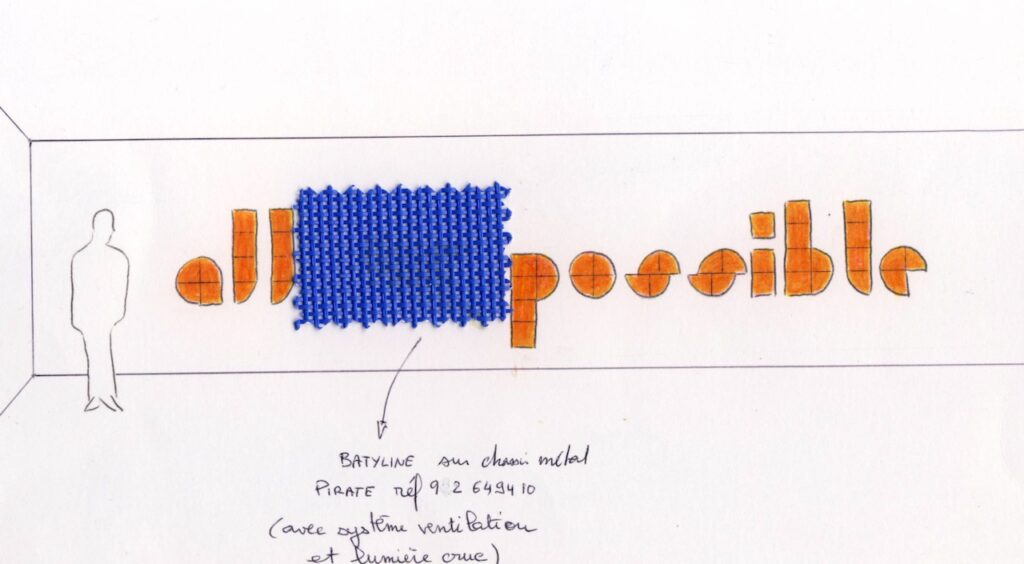 all possible
BATYLINE sur chassi métal
PIRATE réf 92 649410
(avec système ventilation
et lumière crue)